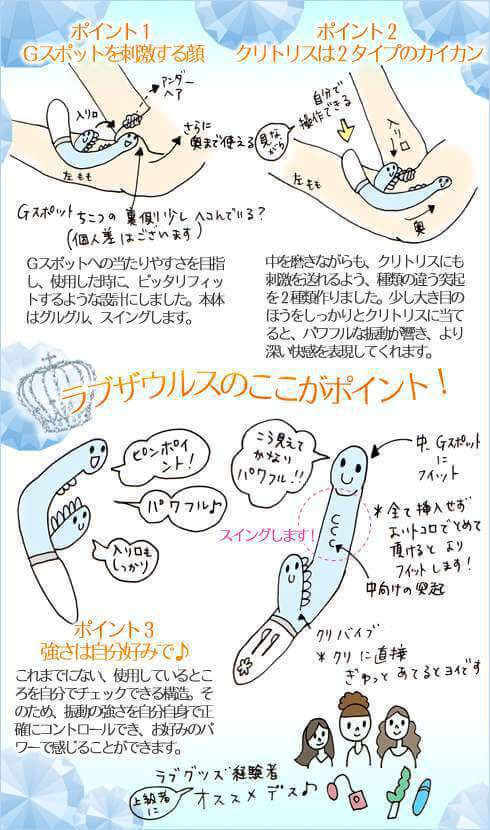 ポイント1
Gスポットを刺激する顔
アンダーヘア
入り口
さらに
奥まで使える
左もも
Gスポット ちこつの裏側 少しヘコんでいる?
(個人差はございます)
Gスポットへの当たりやすさを目指
し、使用した時に、ピッタリフィッ
トするような設計にしました。本体
はグルグル、スイングします。
ポイント2
クリトリスは2タイプのカイカン
自分で
操作できる
見ながら
入り口
左もも
奥
中を磨きながらも、クリトリスにも
刺激を送れるよう、種類の違う突起
を2種類作りました。少し大き目の
ほうをしっかりとクリトリスに当て
ると、パワフルな振動が響き、より
深い快感を表現してくれます。
ラブザウルスのここがポイント!
ピンポイ
ント!
パワフル♪
入り口も
しっかり
こう見えて
かなり
パワフル!!
中、Gスポット
に
フィット
スイングします!
*全て挿入せず
よいトコロでとめて
頂けると より
フィットします!
中向けの突起
クリバイブ
*クリに直接
ぎゅっと あてるとヨイです
ポイント3
強さは自分好みで♪
これまでにない、使用しているとこ
ろを自分でチェックできる構造。そ
のため、振動の強さを自分自身で正
確にコントロールでき、お好みのパ
ワーで感じることができます。
ラブグッズ経験者
上級者に
オススメデス♪